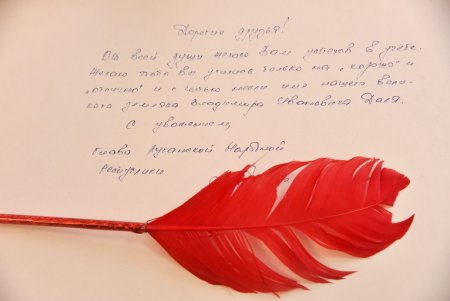 Дорогие друзья!
От всей души желаю Вам успехов в учёбе.
Желаю чтобы Вы учились только на „хорошо" и
„отлично" и с честью несли имя нашего вели-
кого земляка Владимира Ивановича Даля.
С уважением,
Глава Луганской Народной
Республики